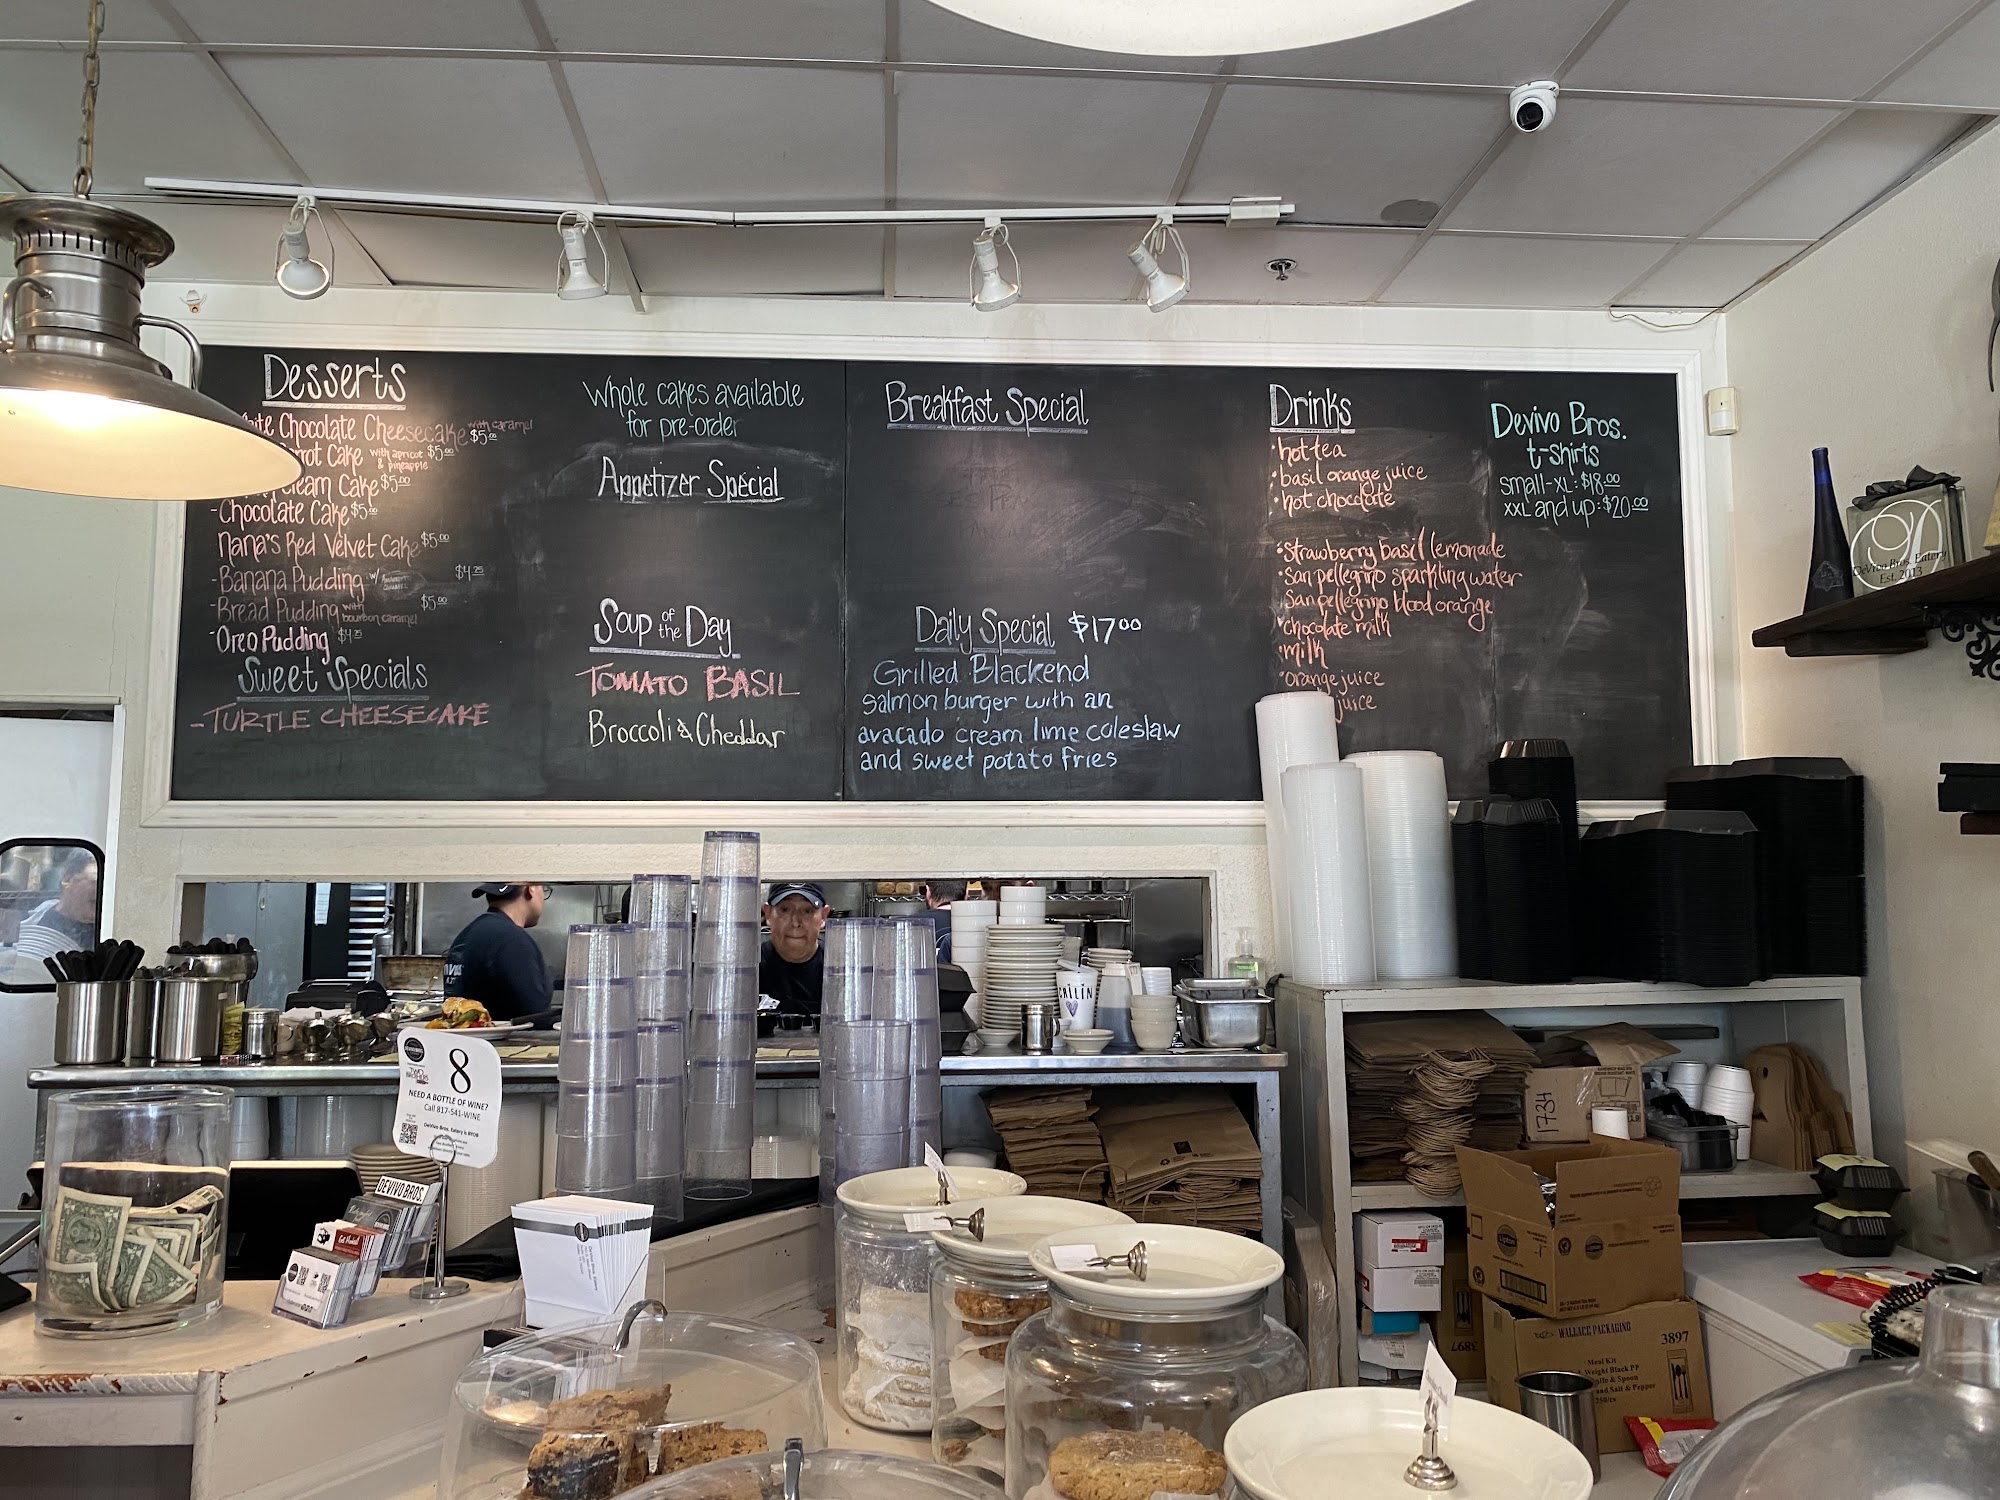 Desserts
Chocolate Cheesecake with caramel $5.00
Cake with apricot & pineapple $5.00
Cream Cake $5.00
-Chocolate Cake $5.00
Nana's Red Velvet Cake $5.00
-Banana Pudding w/ $4.25
-Bread Pudding with bourbon caramel $5.00
-Oreo Pudding $4.25
Sweet Specials
-TURTLE CHEESECAKE
Whole cakes available
for pre-order
Appetizer Special
Soup of the Day
TOMATO BASIL
Broccoli & Cheddar
Breakfast Special
Daily Special $17.00
Grilled Blackend
salmon burger with an
avacado cream lime coleslaw
and sweet potato fries
Drinks
•hot tea
•basil orange juice
•hot chocolate
•strawberry basil lemonade
•san pellegrino sparkling water
san pellegrino blood orange
•chocolate milk
•milk
•orange juice
juice
Devivo Bros.
t-shirts
small-XL: $18.00
XXL and up: $20.00
DeVivo Bros. Eatery
Est. 2013
CAILIN
8
TWO BROTHERS
NEED A BOTTLE OF WINE?
Call 817-541-WINE
DeVivo Bros. Eatery is BYOB
DEVIVO BROS.
1734
Lipton
Lipton
WALLACE PACKAGING
3897
Meal Kit
Weight Black PP
Knife & Spoon
and Salt & Pepper
250/cs
3897